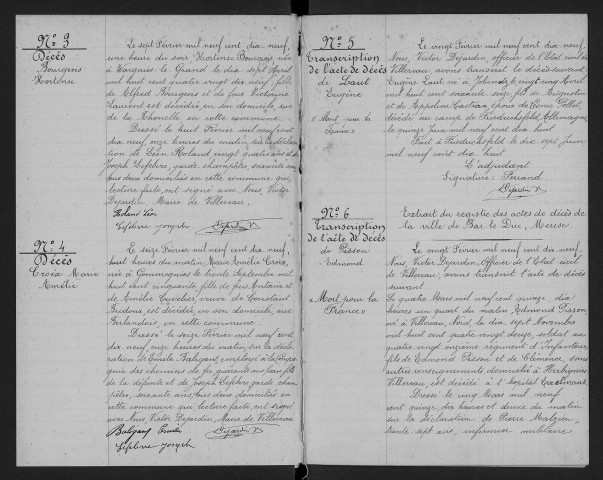 N° 3
Décès
Bourgeois
Hortense
Le sept Février mil neuf cent dix neuf,
une heure du soir Hortense Bourgeois, née
à Wargnies le Grand le dix sept Avril
mil huit cent quatre vingt dix neuf, fille
de Alfred Bourgeois et de feue Victorine
Laurent est décédée en son domicile, sur
de la Rhonelle en cette commune
Dressé le huit Février mil neuf cent
dix neuf, onze heures du matin, sur la décla
ration de Léon Roland vingt quatre ans et de
Joseph Lefebvre, garde champêtre, soixante ans,
tous deux domiciliés en cette commune qui,
lecture faite, ont signé avec Nous, Victor
Dejardin Maire de Villereau.
Roland Léon
Lefebvre Joseph
Dejardin V.
N° 4
Décès
Croix Marie
Amélie
Le seize Février mil neuf cent dix neuf,
huit heures du matin Marie Amélie Croix,
née à Gommegnies le trente Septembre mil
huit cent cinquante, fille de feus Antoine et
de Amélie Cuvelier, veuve de Constant
Budoux est décédée en son domicile, sur
en cette commune
Dressé le seize Février mil neuf cent
dix neuf, onze heures du matin, sur la décla
ration de Emile Baligant, employé à la Compa
gnie des chemins de fer, quarante ans, fils
de la défunte et de Joseph Lefebvre garde cham
pêtre, soixante ans, tous deux domiciliés en
cette commune qui lecture faite, ont signé
avec Nous Victor Dejardin, Maire de Villereau
Baligant Emile
Lefebvre Joseph
Dejardin V.
N° 5
Transcription
de l'acte de décès
de Laut
Eugène
« Mort pour la
France »
Le vingt Février mil neuf cent dix neuf,
Nous, Victor Dejardin, officier de l'Etat civil de
Villereau, avons transcrit l'acte de décès suivant
Eugène Laut né à le vingt cinq Avril
mil huit cent soixante seize, fils de
et de époux de
décédé au camp de Friedrichsfeld (Allemagne)
le quinze Juin mil neuf cent dix huit
Fait à Friedrichsfeld le dix sept Juin
mil neuf cent dix huit
L'adjudant
Signature: Perrand
Dejardin V.
N° 6
Transcription
de l'acte de décès
de Pisson
Edmond
« Mort pour la
France »
Extrait du registre des actes de décès de
la ville de Bar le Duc, Meuse.
Le vingt Février mil neuf cent dix neuf,
Nous, Victor Dejardin, Officier de l'Etat civil
de Villereau, avons transcrit l'acte de décès
suivant
Le quatre Mars mil neuf cent quinze, dix
heures un quart du matin Edmond Pisson
né à Villereau, Nord, le dix sept Novembre
mil huit cent quatre vingt douze, soldat au
quatre vingt onzième régiment d'Infanterie,
fils de Edmond Pisson et de Clémence, sans
autres renseignements domicilié à Herbignies
Villereau, est décédé à l'hopital Exelmans.
Dressé le cinq Mars mil neuf
cent quinze, dix heures et demie du matin
sur la déclaration de Pierre
trente sept ans, infirmier militaire